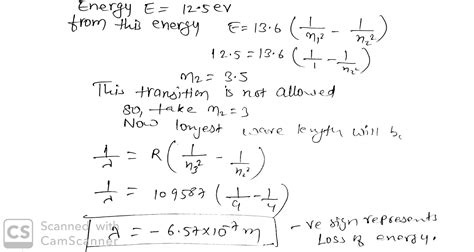 Energy E = 12.5 ev
from this energy E = 13.6 ( 1/n₁² - 1/n₂² )
12.5 = 13.6 ( 1/1 - 1/n₂² )
n₂ = 3.5
This transition is not allowed
so, take n₂ = 3
Now longest wave length will be
1/λ = R ( 1/n₃² - 1/n₂² )
1/λ = 109587 ( 1/9 - 1/4 )
λ = - 6.57×10⁻⁷ m
- ve sign represents
Loss of energy.
CS Scanned with
CamScanner